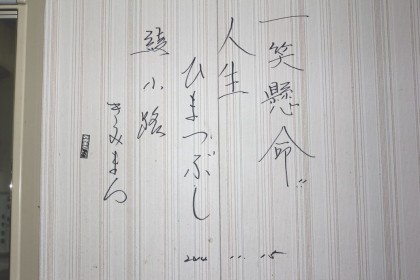 一笑懸命
人生
ひまつぶし
綾小路
きみまろ